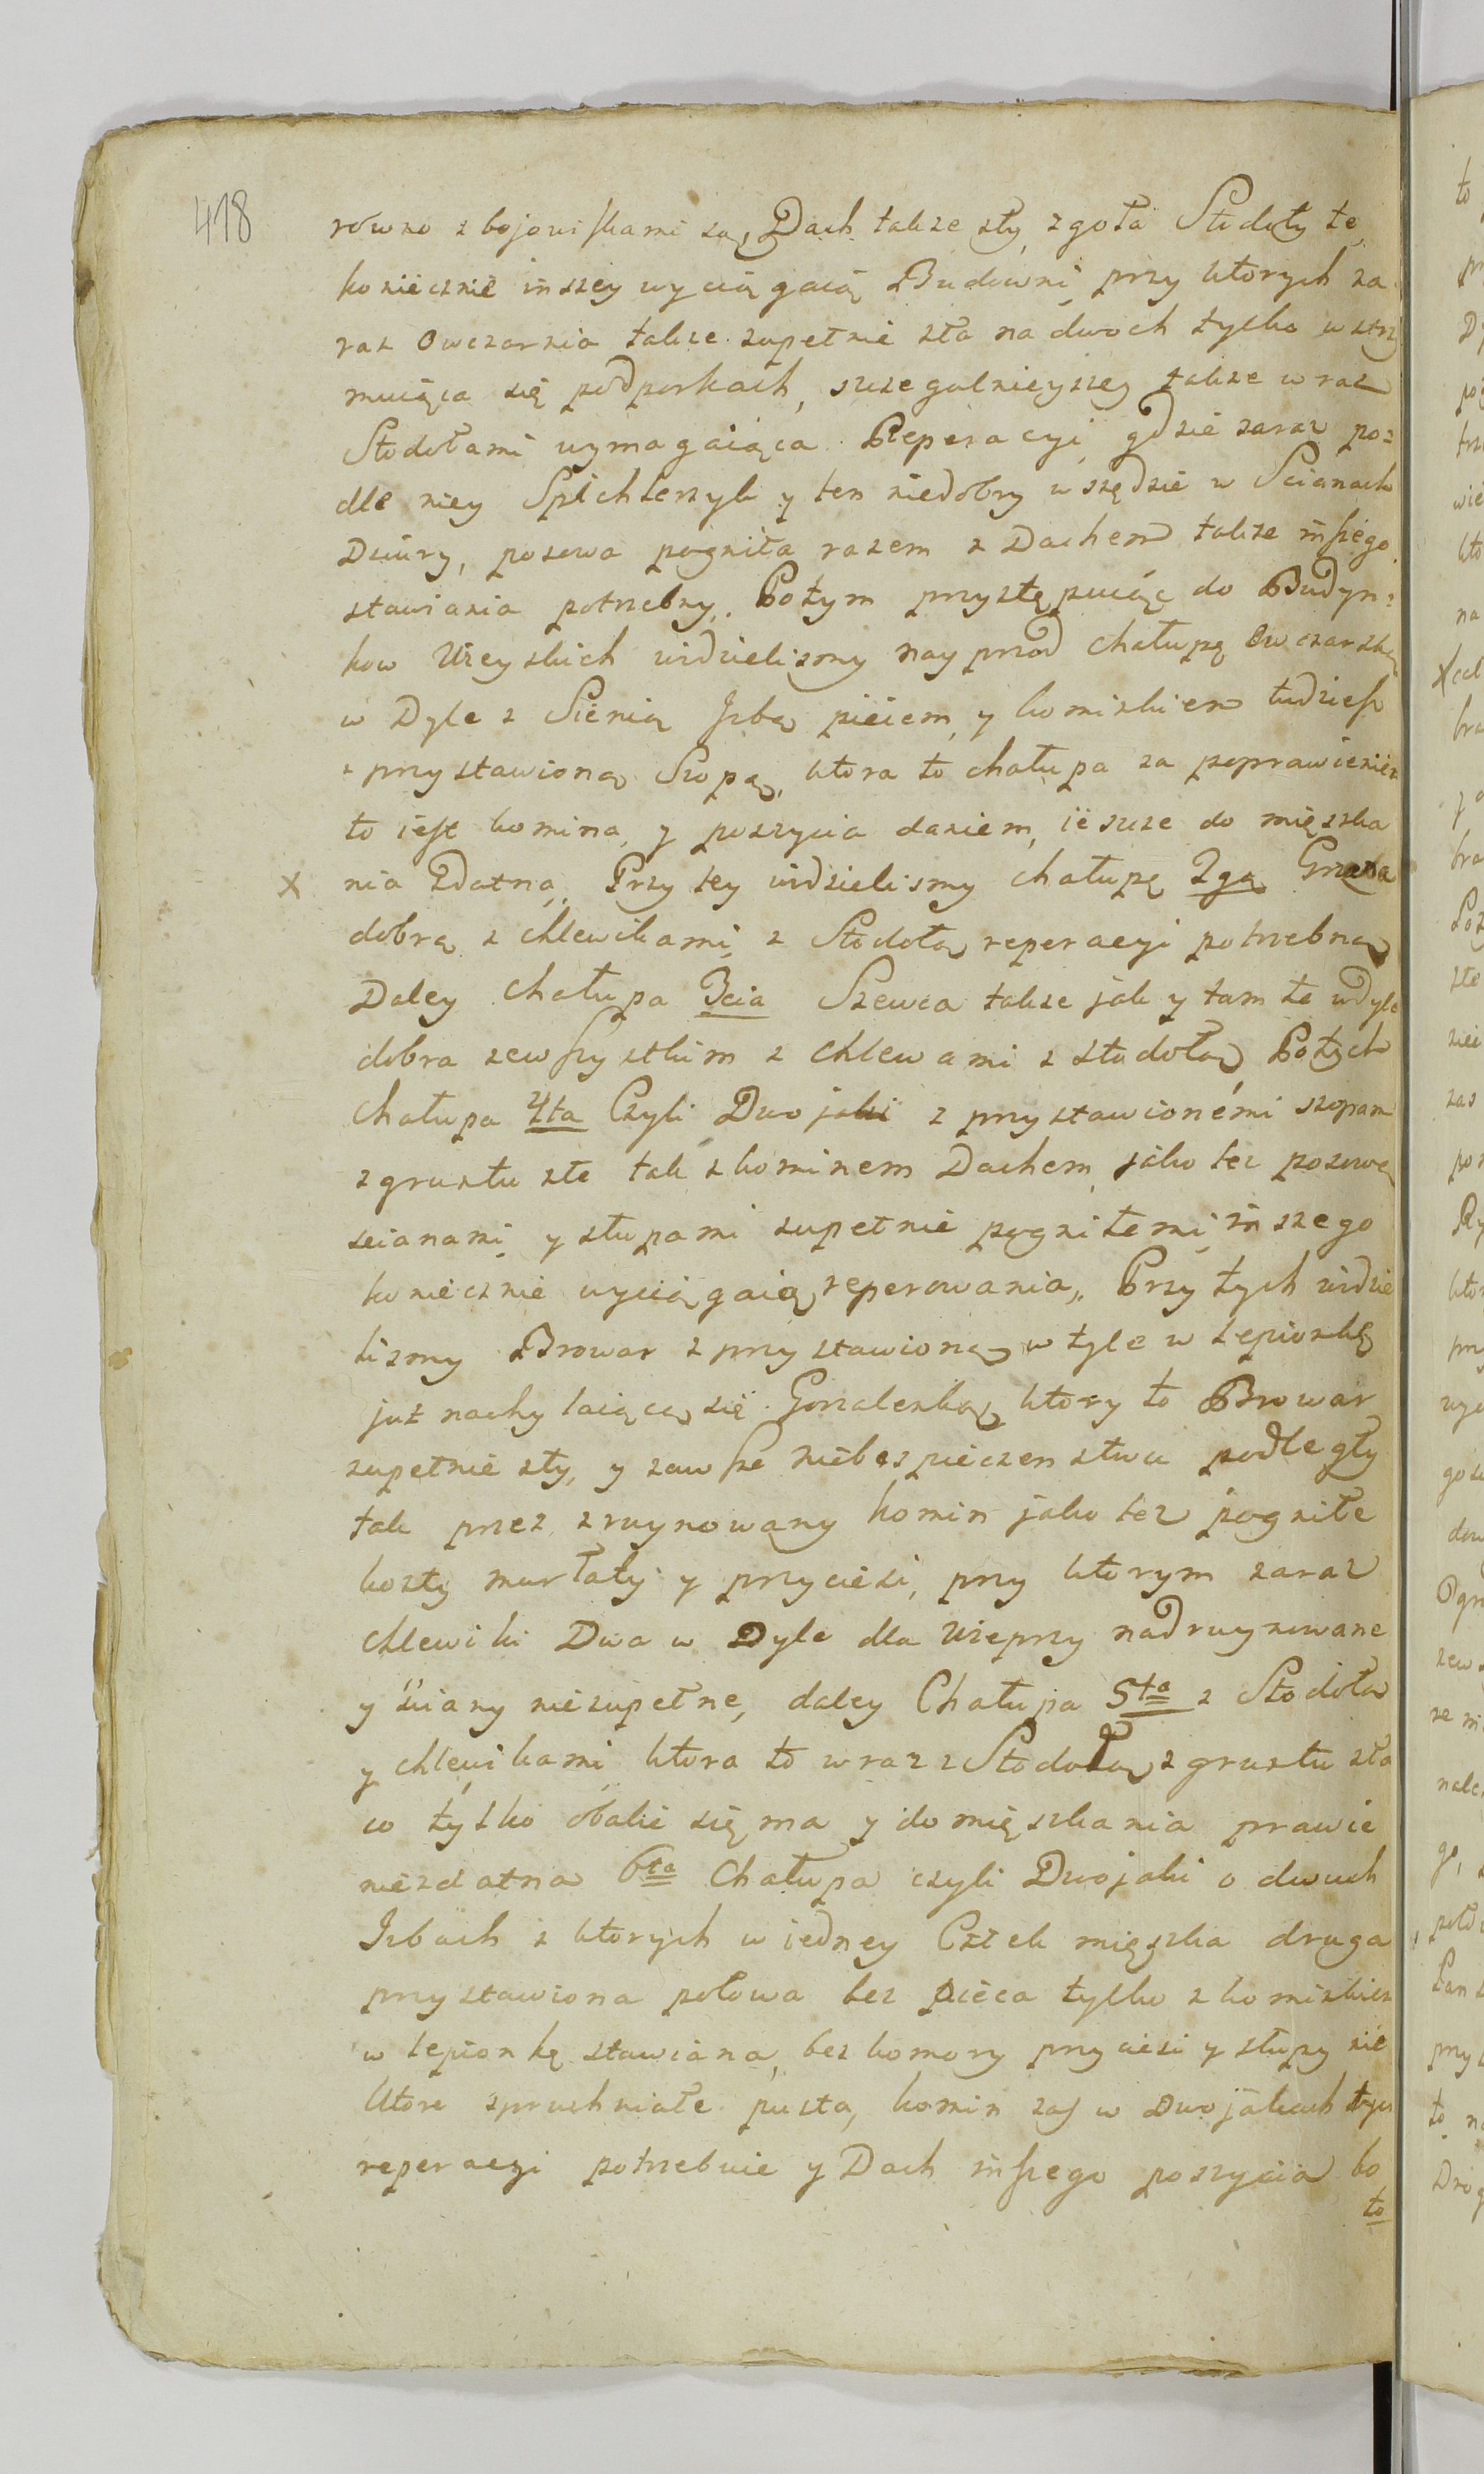 418
rowno z bojowiskami są, Dach takze zły, zgoła Stodoły te
koniecznie inszey wyciągaią Budowni, przy ktorych za
raz Owczarnia takze zupełnie zła na dwoch tylko wstrzy
muiąca się podporkach, szczegulnieyszey takze wraz
Stodołami wymagaiąca Reperacyi, gdzie zaraz po=
dle niey Spichlerzyk y ten niedobry wszędzie w Scianach
Dziury, posowa pogniła razem z Dachem takze inszego
stawiania potrzebny. Potym przystępuiąc do Budyn=
kow Wieyskich widzielismy nayprzod chałupę Owczarską
w Dyle z Sienią Izbą piecem, y kominkiem tudziesz
z przystawioną Szopą, ktora to chałupa za poprawieniem
to iest komina, y poszycia daniem, iescze do mięszka
x nia Zdatna,, Przy tey widzielismy chałupę 2gą
dobrą z chlewikami, z Stodołą reperacyi potrzebną
Daley chałupa 3cia Szewca takze jak y tam te w dyle
dobra zewszystkim z chlewami z stodołą Potych
chałupa 4ta Czyli Dwojaki z przystawionémi szopami
z gruntu złe tak z kominem Dachem, jako tez posową
scianami y słupami zupełnie pogniłemi, inszego
koniecznie wyciągaią reperowania,, Przy tych widzie
lismy Browar z przystawioną w tyle w lepionkę
już nachylaiącą się Gorzalenką, ktory to Browar
zupełnie zły, y zawsze niebespieczenstwu podległy
tak przez zruynowany komin jako tez pogniłe
kozły murłaty y przyciesi, przy ktorym zaraz
chlewiki Dwa w Dyle dla Wieprzy nadruynowane
y sciany niezupełne, daley Chałupa 5ta z Stodołą
y chlewikami, ktora to wraz z Stodołą z gruntu zła
co tylko obalić się ma y do mięszkania prawie
niezdatna 6ta Chałupa czyli Dwojaki o dwuch
Izbach z ktorych w iedney Człek mięszka druga
przystawiona połowa bez pieca tylko z kominkiem
w lepionkę stawiana, bez komory przyciesi y słupy nie
ktore spruchniałe pusta, komin zas w Dwojakach tych
reperacyi potrzebuie y Dach inszego poszycia bo
to